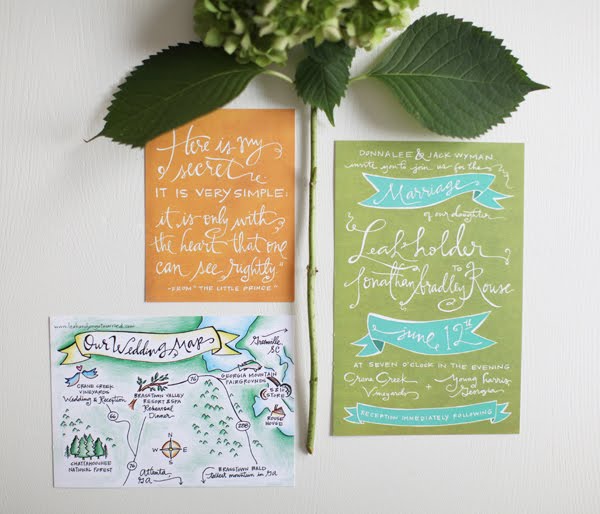 Here is my
secret
IT IS VERY SIMPLE:
it is only with
the heart that one
can see rightly"
-FROM "THE LITTLE PRINCE"
DONNALEE & JACK WYMAN
invite you to join us for the
Marriage
of our daughter
Leah holder
To
Jonathan bradley Rouse
June 12th
AT SEVEN O'CLOCK IN THE EVENING
Crane Creek
Vineyards
+
Young harris,
Georgia
RECEPTION IMMEDIATELY FOLLOWING
Our Wedding Map
Greenville,
SC
CRANE CREEK
VINEYARDS
Wedding & Reception
BRASSTOWN VALLEY
RESORT & SPA
Rehearsal
Dinner
76
GEORGIA MOUNTAIN
FAIRGROUNDS
STORE
ROUSE
HOUSE
66
288
CHATTAHOOCHEE
NATIONAL FOREST
N
W
E
S
76
Atlanta,
GA
BRASSTOWN BALD
tallest mountain in GA